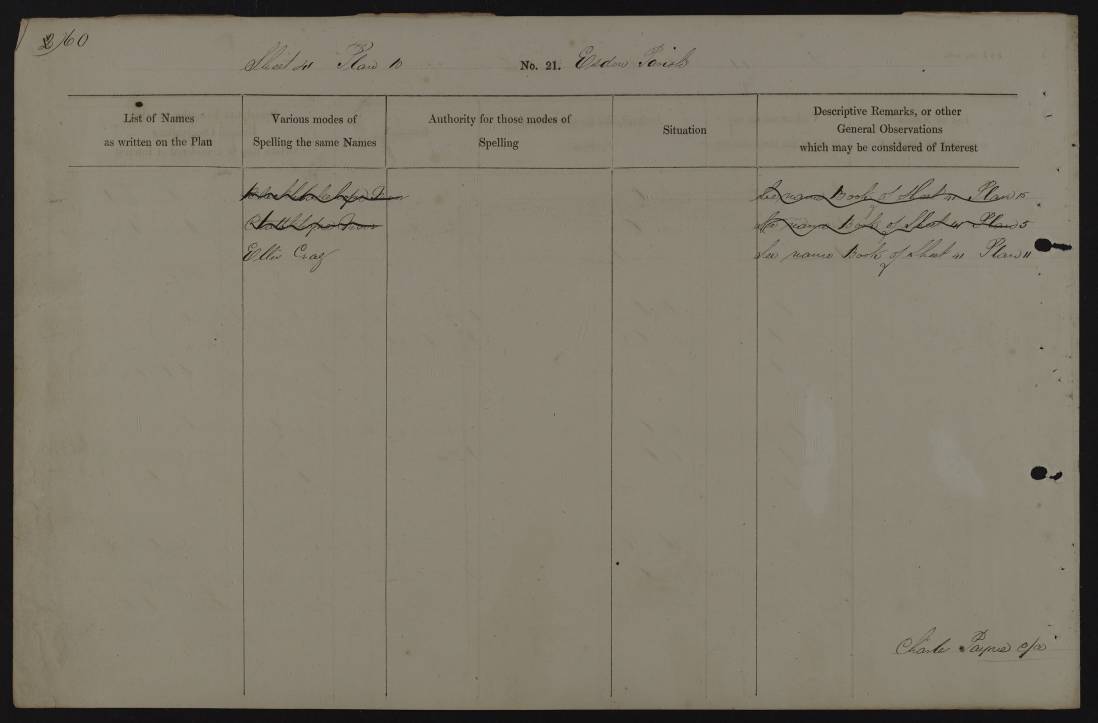 260
Sheet 41 Plan No. 21. Elsdon Parish
List of Names as written on the Plan
Various modes of Spelling the same Names
Authority for those modes of Spelling
Situation
Descriptive Remarks, or other General Observations which may be considered of Interest
See name Book of Sheet 41 Plan 15
See name Book of Sheet 41 Plan 5
Ellis Crag See name Book of Sheet 41 Plan 11
Charles Payne c/a